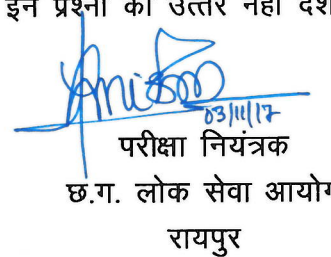 इन प्रश्नों का उत्तर नहीं दश
03/11/17
परीक्षा नियंत्रक
छ.ग. लोक सेवा आयोग
रायपुर